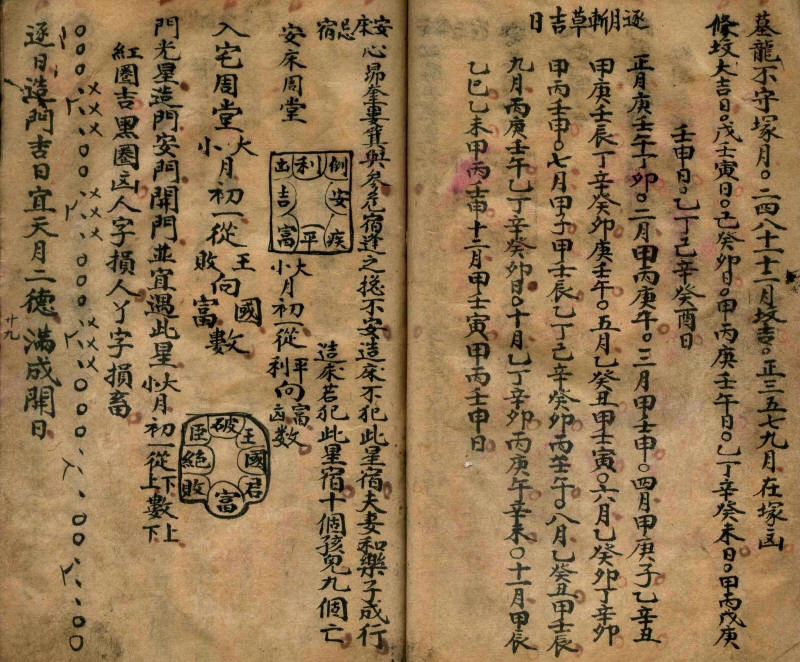 墓龍不守塚月○二四八十十一月坟吉○正三五七九月在塚凶
修坟大吉日○戊壬寅日○己癸卯日○甲丙庚壬午日○乙丁辛癸未日○甲丙戊庚
壬申日○乙丁己辛癸酉日
逐月斬草吉日
正月庚壬午丁卯○二月甲丙庚午○三月甲壬申○四月甲庚子乙辛丑
甲庚壬辰丁辛癸卯庚壬午○五月乙癸丑甲壬寅○六月乙癸卯丁辛卯
甲丙壬申○七月甲子甲壬辰乙丁己辛癸卯丙壬午○八月乙癸丑甲壬辰
九月丙庚壬午乙丁辛癸卯日○十月乙丁辛卯丙庚午辛未○十一月甲辰
乙巳乙未甲丙壬申十二月甲壬寅甲丙壬申日
安床忌宿
心昴奎婁箕與參危宿逢之总不安造床不犯此星宿夫妻和樂子成行
造床若犯此星宿十個孩兒九個亡
安床周堂
凶利倒
吉安
富平疾
大月初一從平向富數
小月初一從利向凶數
入宅周堂
大月初一從王向國數
小月初一從敗向富數
臣破王
絕國
敗富君
門光星造門安門開門並宜遇此星大月初一從下數上
小月初一從上數下
紅圈吉黑圈凶人字損人丫字損畜
逐日造門吉日宜天月二德滿成開日
廿九